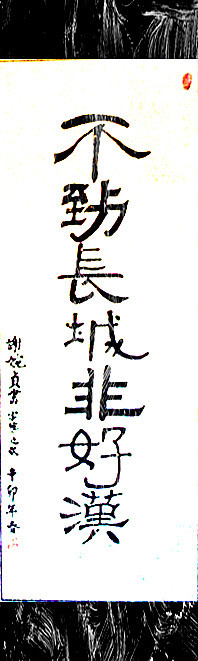 不到長城非好漢
謝婉貞書 辛卯年春